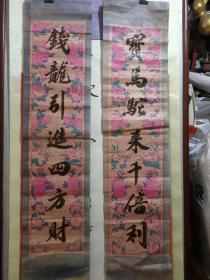 寶馬駝来千倍利
錢龍引進四方財